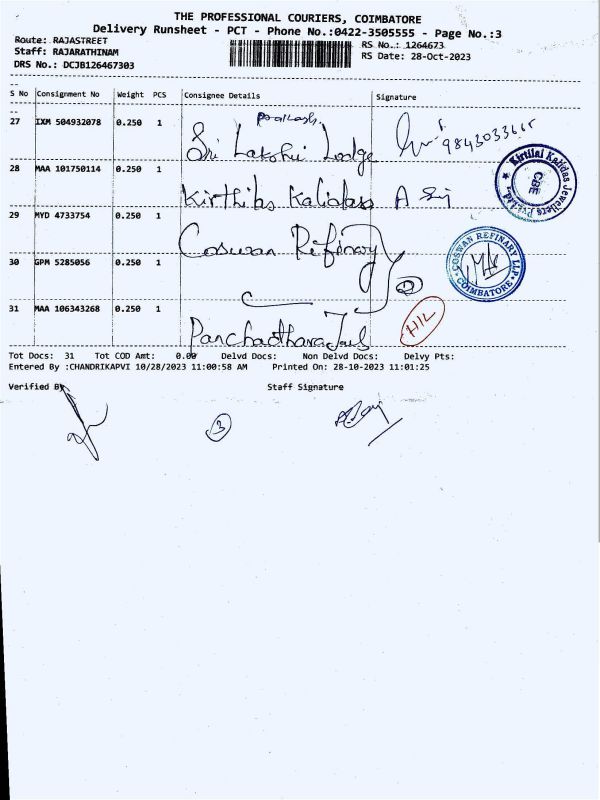 THE PROFESSIONAL COURIERS, COIMBATORE
Delivery Runsheet - PCT - Phone No.:0422-3505555 - Page No.:3
Route: RAJASTREET
RS No.: 1264673
Staff: RAJARATHINAM
RS Date: 28-Oct-2023
DRS No.: DCJB126467303
S No Consignment No Weight PCS Consignee Details Signature
27 IXM 504932078 0.250 1 Prakash. Sri Lakshmi Lodge 9843033665
28 MAA 101750114 0.250 1 Kirthilas Kalidass
Kirtilal Kalidas Jewellers Pvt. Ltd. CBE
29 MYD 4733754 0.250 1 Coswan Refinary
COSWAN REFINARY LLP COIMBATORE
30 GPM 5285056 0.250 1 2
31 MAA 106343268 0.250 1 Panchadhara Jails H/L
Tot Docs: 31 Tot COD Amt: 0.00 Delvd Docs: Non Delvd Docs: Delvy Pts:
Entered By :CHANDRIKAPVI 10/28/2023 11:00:58 AM Printed On: 28-10-2023 11:01:25
Verified By Staff Signature
3